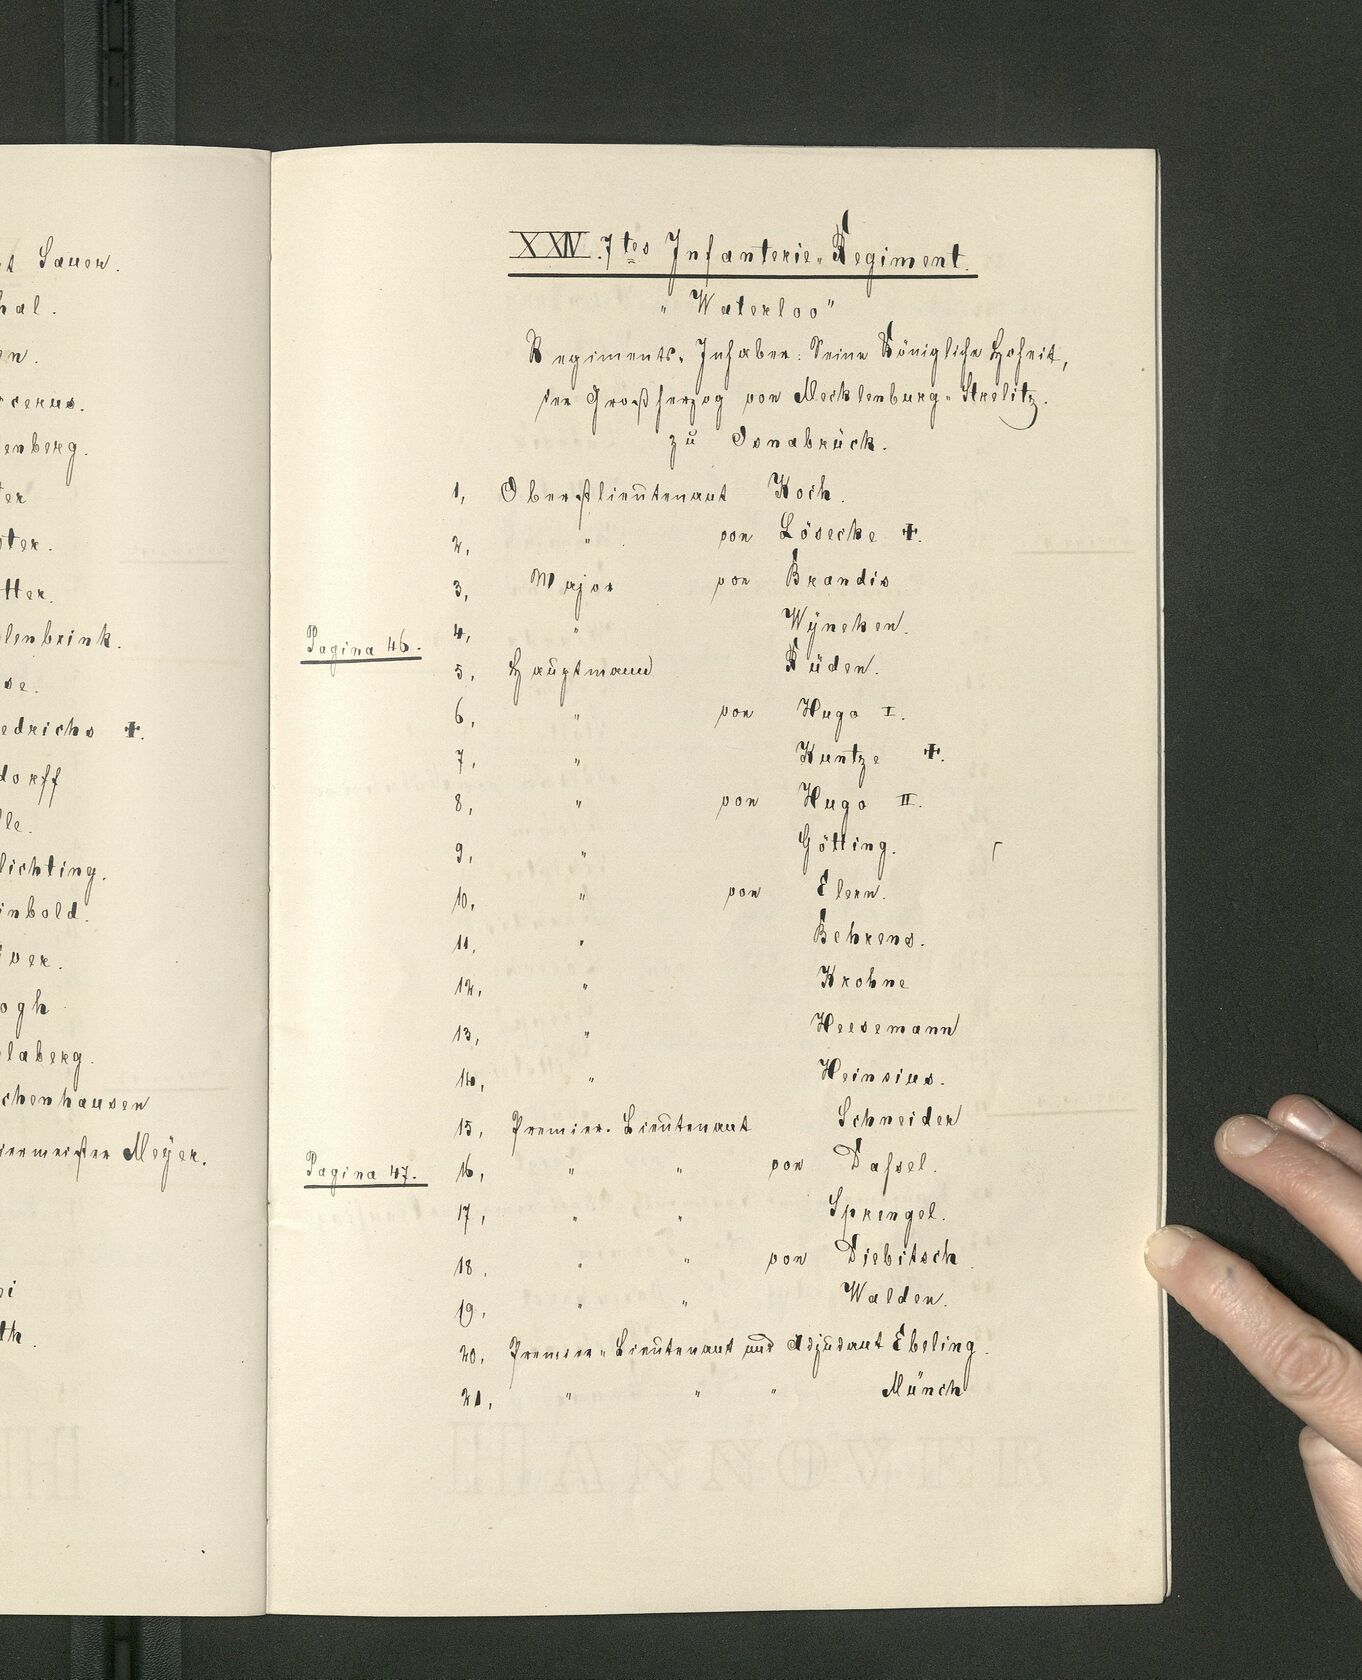 t Sauer.
hal.
en.
rcerus.
enberg.
ter
oter.
tter.
lenbrink.
se.
edrichs ✝.
dorff
lle.
lichting.
inbold.
ver.
ogh
laberg.
chenhausen
iermeister Meÿer.
ei
th.
XXIV. 7tes Infanterie-Regiment.
"Waterloo"
Regiments-Inhaber: Seine Königliche Hoheit,
der Großherzog von Mecklenburg-Strelitz.
zu Osnabrück.
1, Oberstlieutenant Koch.
2, " von Lösecke ✝.
3, Major von Brandis
4, " Wÿneken.
Pagina 46.
5, Hauptmann Rüden.
6, " von Hugo I.
7, " Kuntze ✝.
8, " von Hugo II.
9, " Götting.
10, " von Elern.
11, " Behrens.
12, " Krohne
13, " Heesemann
14, " Heinsius.
15, Premier-Lieutenant Schneider
Pagina 47.
16, " " von Dassel.
17, " " Sprengel.
18. " " von Diebitsch
19, " " Walden.
20, Premier-Lieutenant und Adjudant Ebeling.
21, " " " Münch